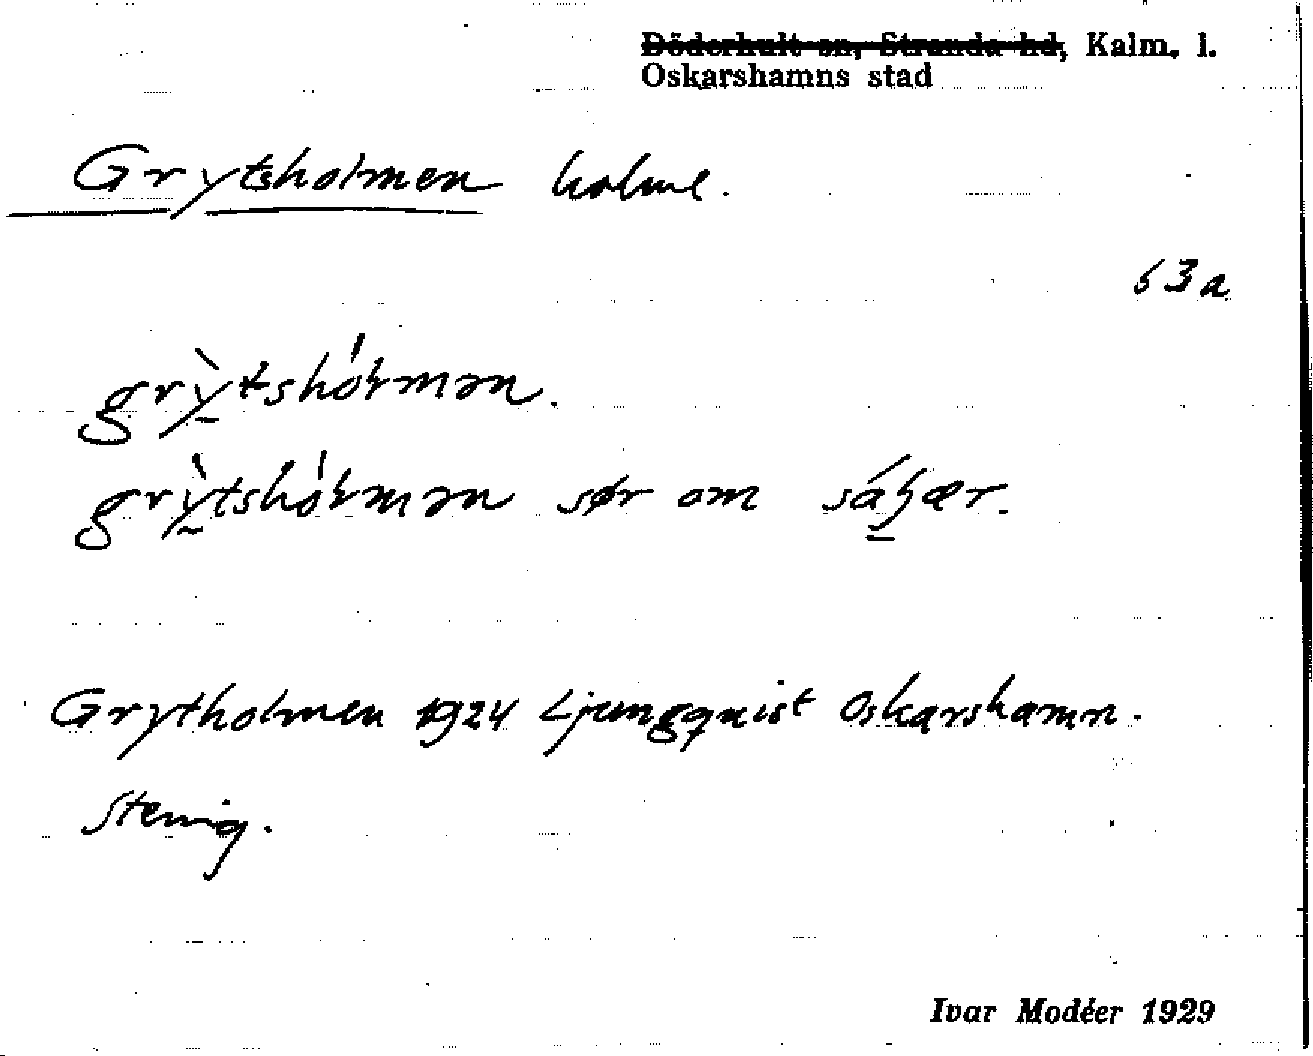 Döderhult sn, Stranda hd, Kalm. l.
Oskarshamns stad
Grytsholmen holme.
53a
grỳtshólmən.
grỳtshólmən sør om
Grytholmen 1924 Ljungquist Oskarshamn.
Stenig.
Ivar Modéer 1929